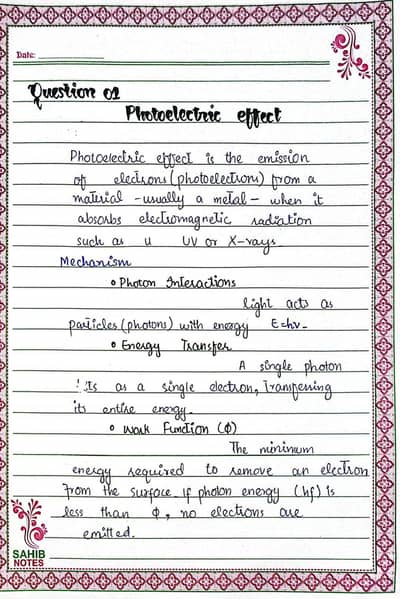 Date:
Question 02
Photoelectric effect
Photoelectric effect is the emission
of electrons (photoelectrons) from a
material - usually a metal - when it
absorbs electromagnetic radiation
such as u UV or X-rays
Mechanism
• Photon Interactions
light acts as
particles (photons) with energy E=hv-
• Energy Transfer
A single photon
its as a single electron, Transferring
its entire energy.
• Work Function (Φ)
The minimum
energy required to remove an electron
from the surface. if photon energy (hf) is
less than Φ, no electrons are
emitted.
SAHIB
NOTES